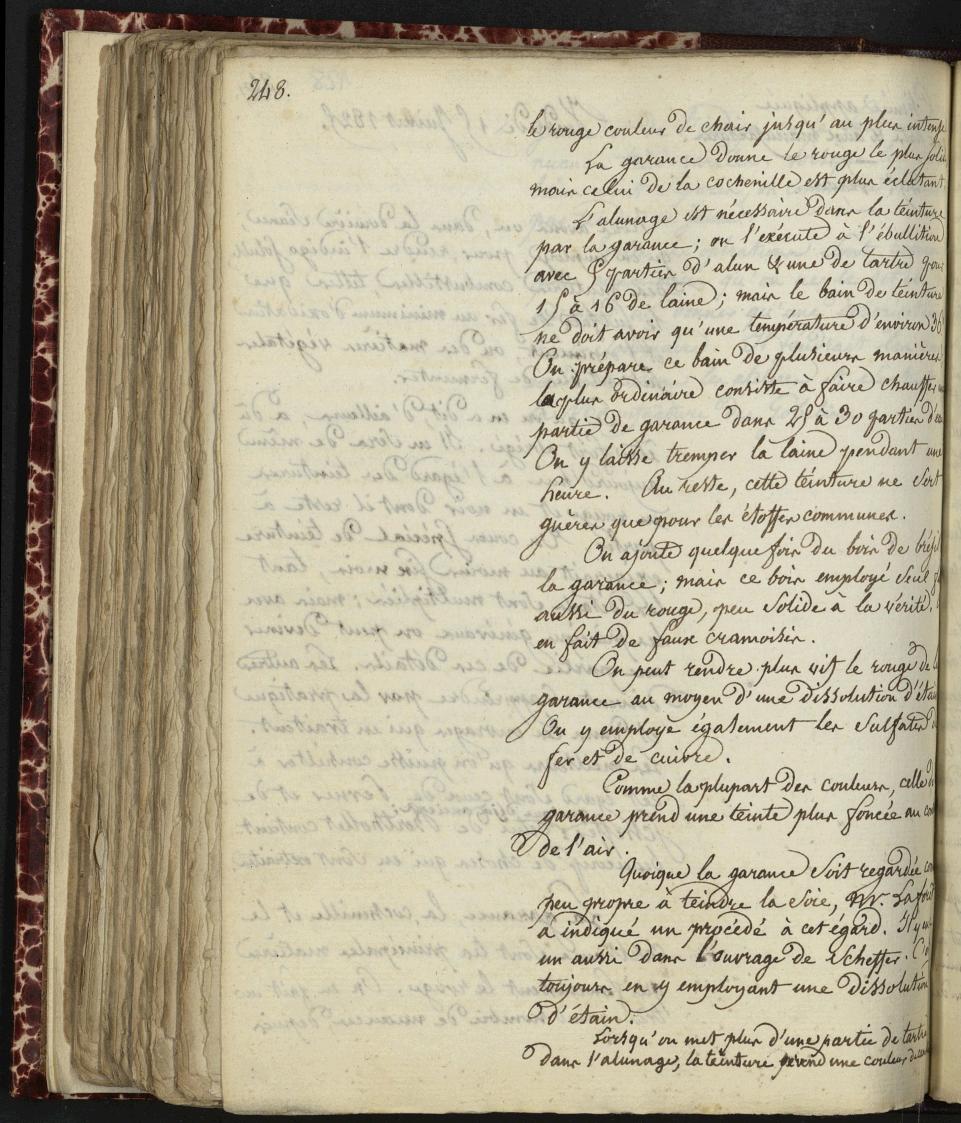 248.
le rouge couleur de chair jusqu'au plus intense
La garance donne le rouge le plus soli
mais celui de la cochenille est plus éclatant.
L'alunage est nécessaire dans la teinture
par la garance ; on l'exécute à l'ébullition
avec 5 parties d'alun & une de tartre pour
15 à 16 de laine ; mais le bain de teinture
ne doit avoir qu'une température d'environ 36
On prépare ce bain de plusieurs manières
la plus ordinaire consiste à faire chauffer
partie de garance dans 25 à 30 parties d'eau
On y laisse tremper la laine pendant une
heure. Au reste, cette teinture ne sert
guères que pour les étoffes communes.
On ajoute quelque fois du bois de brési
la garance ; mais ce bois employé seul
aussi du rouge, peu solide à la vérité.
en fait de faux cramoisis.
On peut rendre plus vif le rouge de
garance au moyen d'une dissolution d'étai
On y employe également les sulfates
fer et de cuivre.
Comme la plupart des couleurs, celle
garance prend une teinte plus foncée au con
de l'air.
Quoique la garance soit regardée co
peu propre à teindre la soie, Mr. La fol
a indiqué un procédé à cet égard. Il y en
un aussi dans l'ouvrage de Scheffer. C'e
toujours en y employant une dissolution
d'étain.
Lorsqu'on met plus d'une partie de tartre
dans l'alunage, la teinture prend une couleur